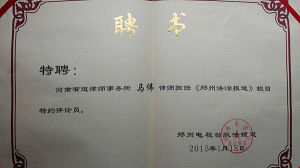 聘 书
特聘：
河南有道律师事务所 马伟 律师担任《郑州法治报道》栏目
特约评论员。
郑州电视台政法频道
2015年1月13日